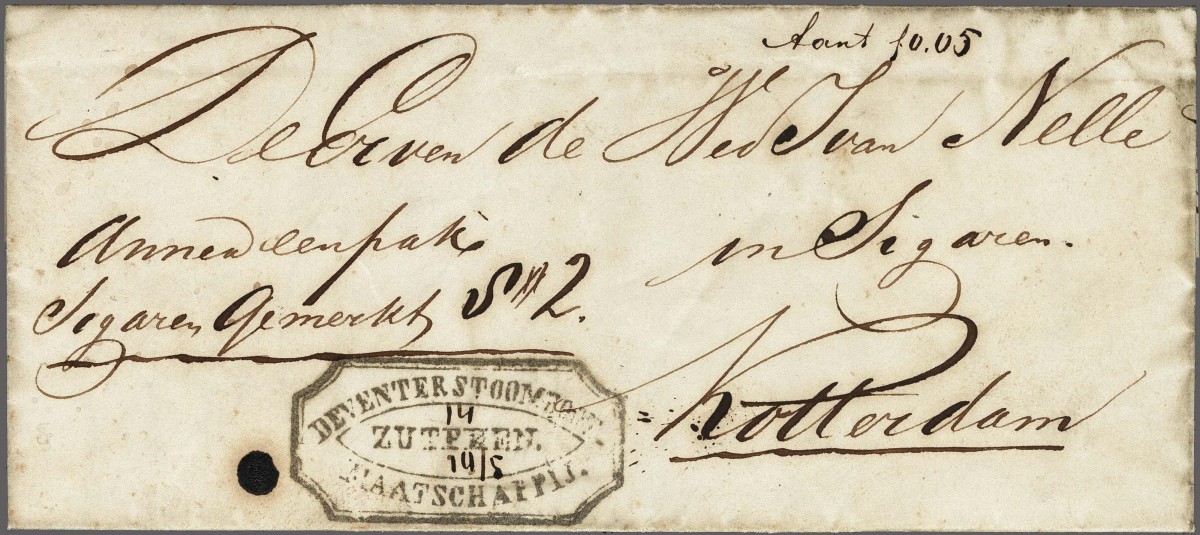 Aant f0.05
De Erven de Wed J van Nelle
Annex een pak
in Sigaren.
Sigaren Gemerkt S№ 2.
Rotterdam
DEVENTER STOOMBOOT
ZUTPHEN.
MAATSCHAPPIJ.